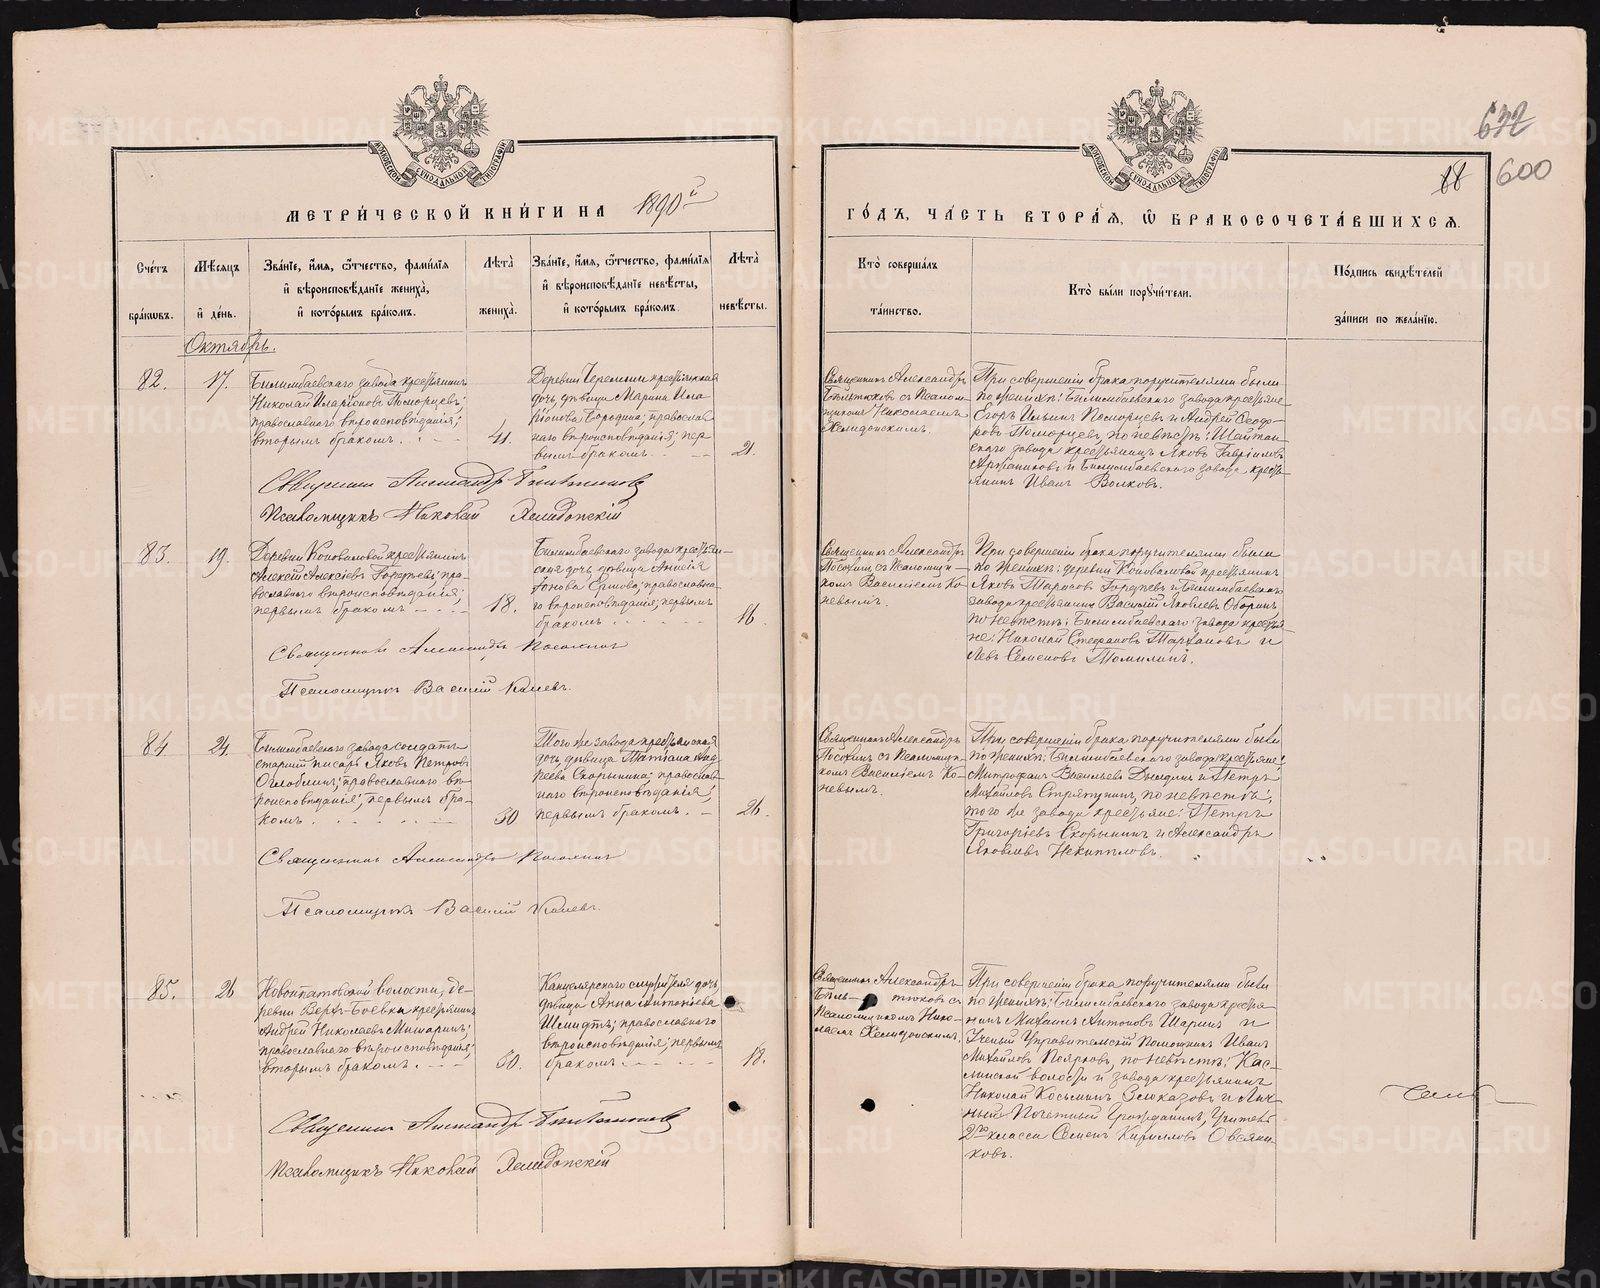 632
600
88
МЕТРИЧЕСКОЙ КНИГИ НА 1890й
ГОДЪ, ЧАСТЬ ВТОРАЯ, Ѡ БРАКОСОЧЕТАВШИХСЯ.
Счетъ браковъ.
Мѣсяцъ и день.
Званіе, имя, отчество, фамилія и вѣроисповѣданіе жениха, и которымъ бракомъ.
Лѣта жениха.
Званіе, имя, отчество, фамилія и вѣроисповѣданіе невѣсты, и которымъ бракомъ.
Лѣта невѣсты.
Кто совершалъ таинство.
Кто были поручители.
Подпись свидѣтелей записи по желанію.
Октябрь.
82.
17.
Билимбаевскаго завода крестьянинъ
Николай Иларіоновъ Поморцевъ,
православнаго вѣроисповѣданія,
вторымъ бракомъ.
41.
Деревни Черемши крестьянская
дочь, дѣвица Марина Ила-
ріонова Бородина; православ-
наго вѣроисповѣданія; пер-
вымъ бракомъ.
21.
Священникъ Александръ
съ Псалом-
щикомъ Николаемъ
Хелидонскимъ.
При совершеніи брака поручителями были
по женихѣ: Билимбаевскаго завода крестьяне
Егоръ Ильинъ Поморцевъ и Андрей Ѳеодо-
ровъ Поморцевъ, по невѣстѣ: Шайтан-
скаго завода крестьянинъ Яковъ Гавріиловъ
и Билимбаевскаго завода кресть-
янинъ Иванъ Волковъ.
Священникъ Александръ
Псаломщикъ Николай Хелидонскій
83.
19.
Деревни Коноваловой крестьянинъ
Алексѣй Алексіевъ пра-
вославнаго вѣроисповѣданія;
первымъ бракомъ
18.
Билимбаевскаго завода крестьян-
ская дочь дѣвица
Ершова; православна-
го вѣроисповѣданія; первымъ
бракомъ
16.
Священникъ Александръ
съ Псаломщи-
комъ Василіемъ Ко-
невымъ.
При совершеніи брака поручителями были
по женихѣ: деревни Коноваловой крестьянинъ
Яковъ и Билимбаевскаго
завода крестьянинъ Василій Яковлевъ Оборинъ,
по невѣстѣ: Билимбаевскаго завода крестья-
не: Николай Стефановъ и
Левъ Семеновъ Томилинъ.
Священникъ Александръ
Псаломщикъ Василій Коневъ.
84
24.
Билимбаевскаго завода солдатъ
старшій писарь Яковъ Петровъ
Оглоблинъ; православнаго вѣ-
роисповѣданія; первымъ бра-
комъ.
30
Того же завода крестьянская
дочь дѣвица Татіана Анд-
реева Скорынина; православ-
наго вѣроисповѣданія;
первымъ бракомъ.
26.
Священникъ Александръ
съ Псаломщи-
комъ Василіемъ Ко-
невымъ.
При совершеніи брака поручителями были
по женихѣ: Билимбаевскаго завода крестьяне:
Митрофанъ Васильевъ и Петръ
Михайловъ Стряпунинъ, по невѣстѣ:
того же завода крестьяне: Петръ
Григоріевъ Скорынинъ и Александръ
Яковлевъ
Священникъ Александръ
Псаломщикъ Василій Коневъ.
85.
26
волости, де-
ревни Верхъ-Боевки крестьянинъ
Андрей Николаевъ
православнаго вѣроисповѣданія;
вторымъ бракомъ.
30.
Канцелярскаго служителя дочь
дѣвица Анна Антоніева
Шмидтъ; православнаго
вѣроисповѣданія; первымъ
бракомъ.
18.
Священникъ Александръ
съ
Псаломщикомъ Нико-
лаемъ Хелидонскимъ.
При совершеніи брака поручителями были
по женихѣ: Билимбаевскаго завода крестья-
нинъ Михаилъ Антоновъ и
Ученый Управительскій Помощникъ Иванъ
Михайловъ Поярковъ, по невѣстѣ: Кас-
линской волости и завода крестьянинъ
Николай Косьминъ и Лич-
ный Почетный Гражданинъ, Учитель
2го класса Семенъ Кирилловъ Овсяни-
ковъ.
Священникъ Александръ
Псаломщикъ Николай Хелидонскій
METRIKI.GASO-URAL.RU